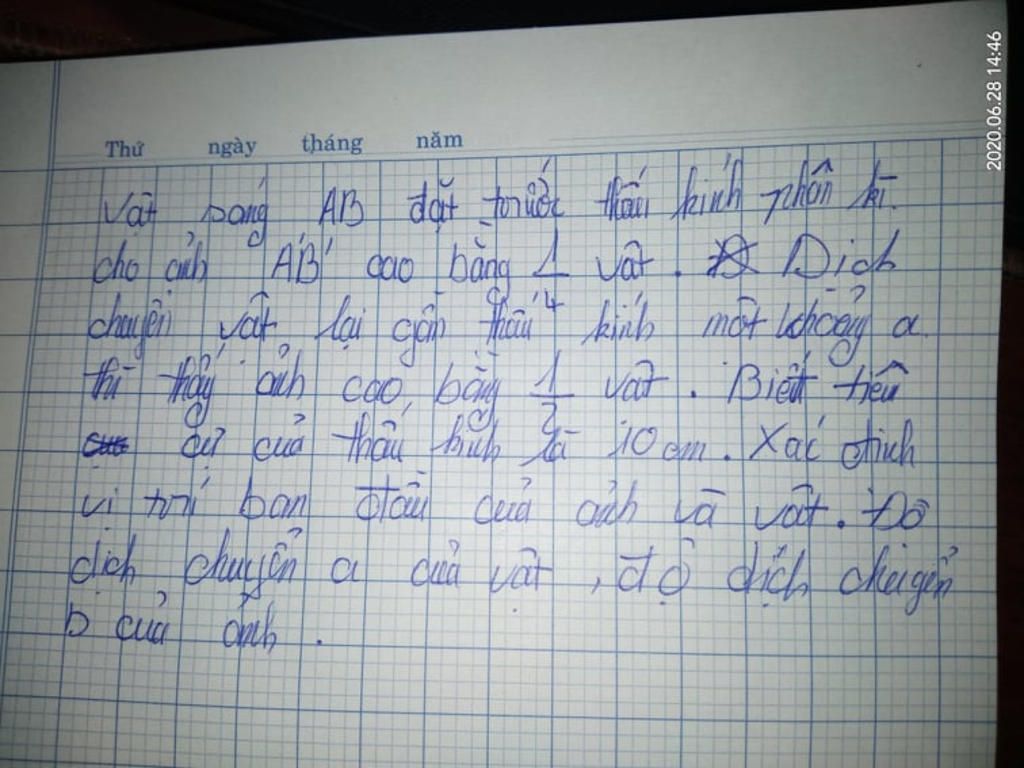 2020.06.28 14:46
Thứ ngày tháng năm
Vật sáng AB đặt trước thấu kính phân kì.
cho ảnh A'B' cao bằng 1/4 vật. Dịch
chuyển vật lại gần thấu kính một khoảng a
thì thấy ảnh cao bằng 1/2 vật. Biết tiêu
cự của thấu kính là 10 cm. Xác định
vị trí ban đầu của ảnh và vật. Độ
dịch chuyển a của vật, độ dịch chuyển
b của ảnh.